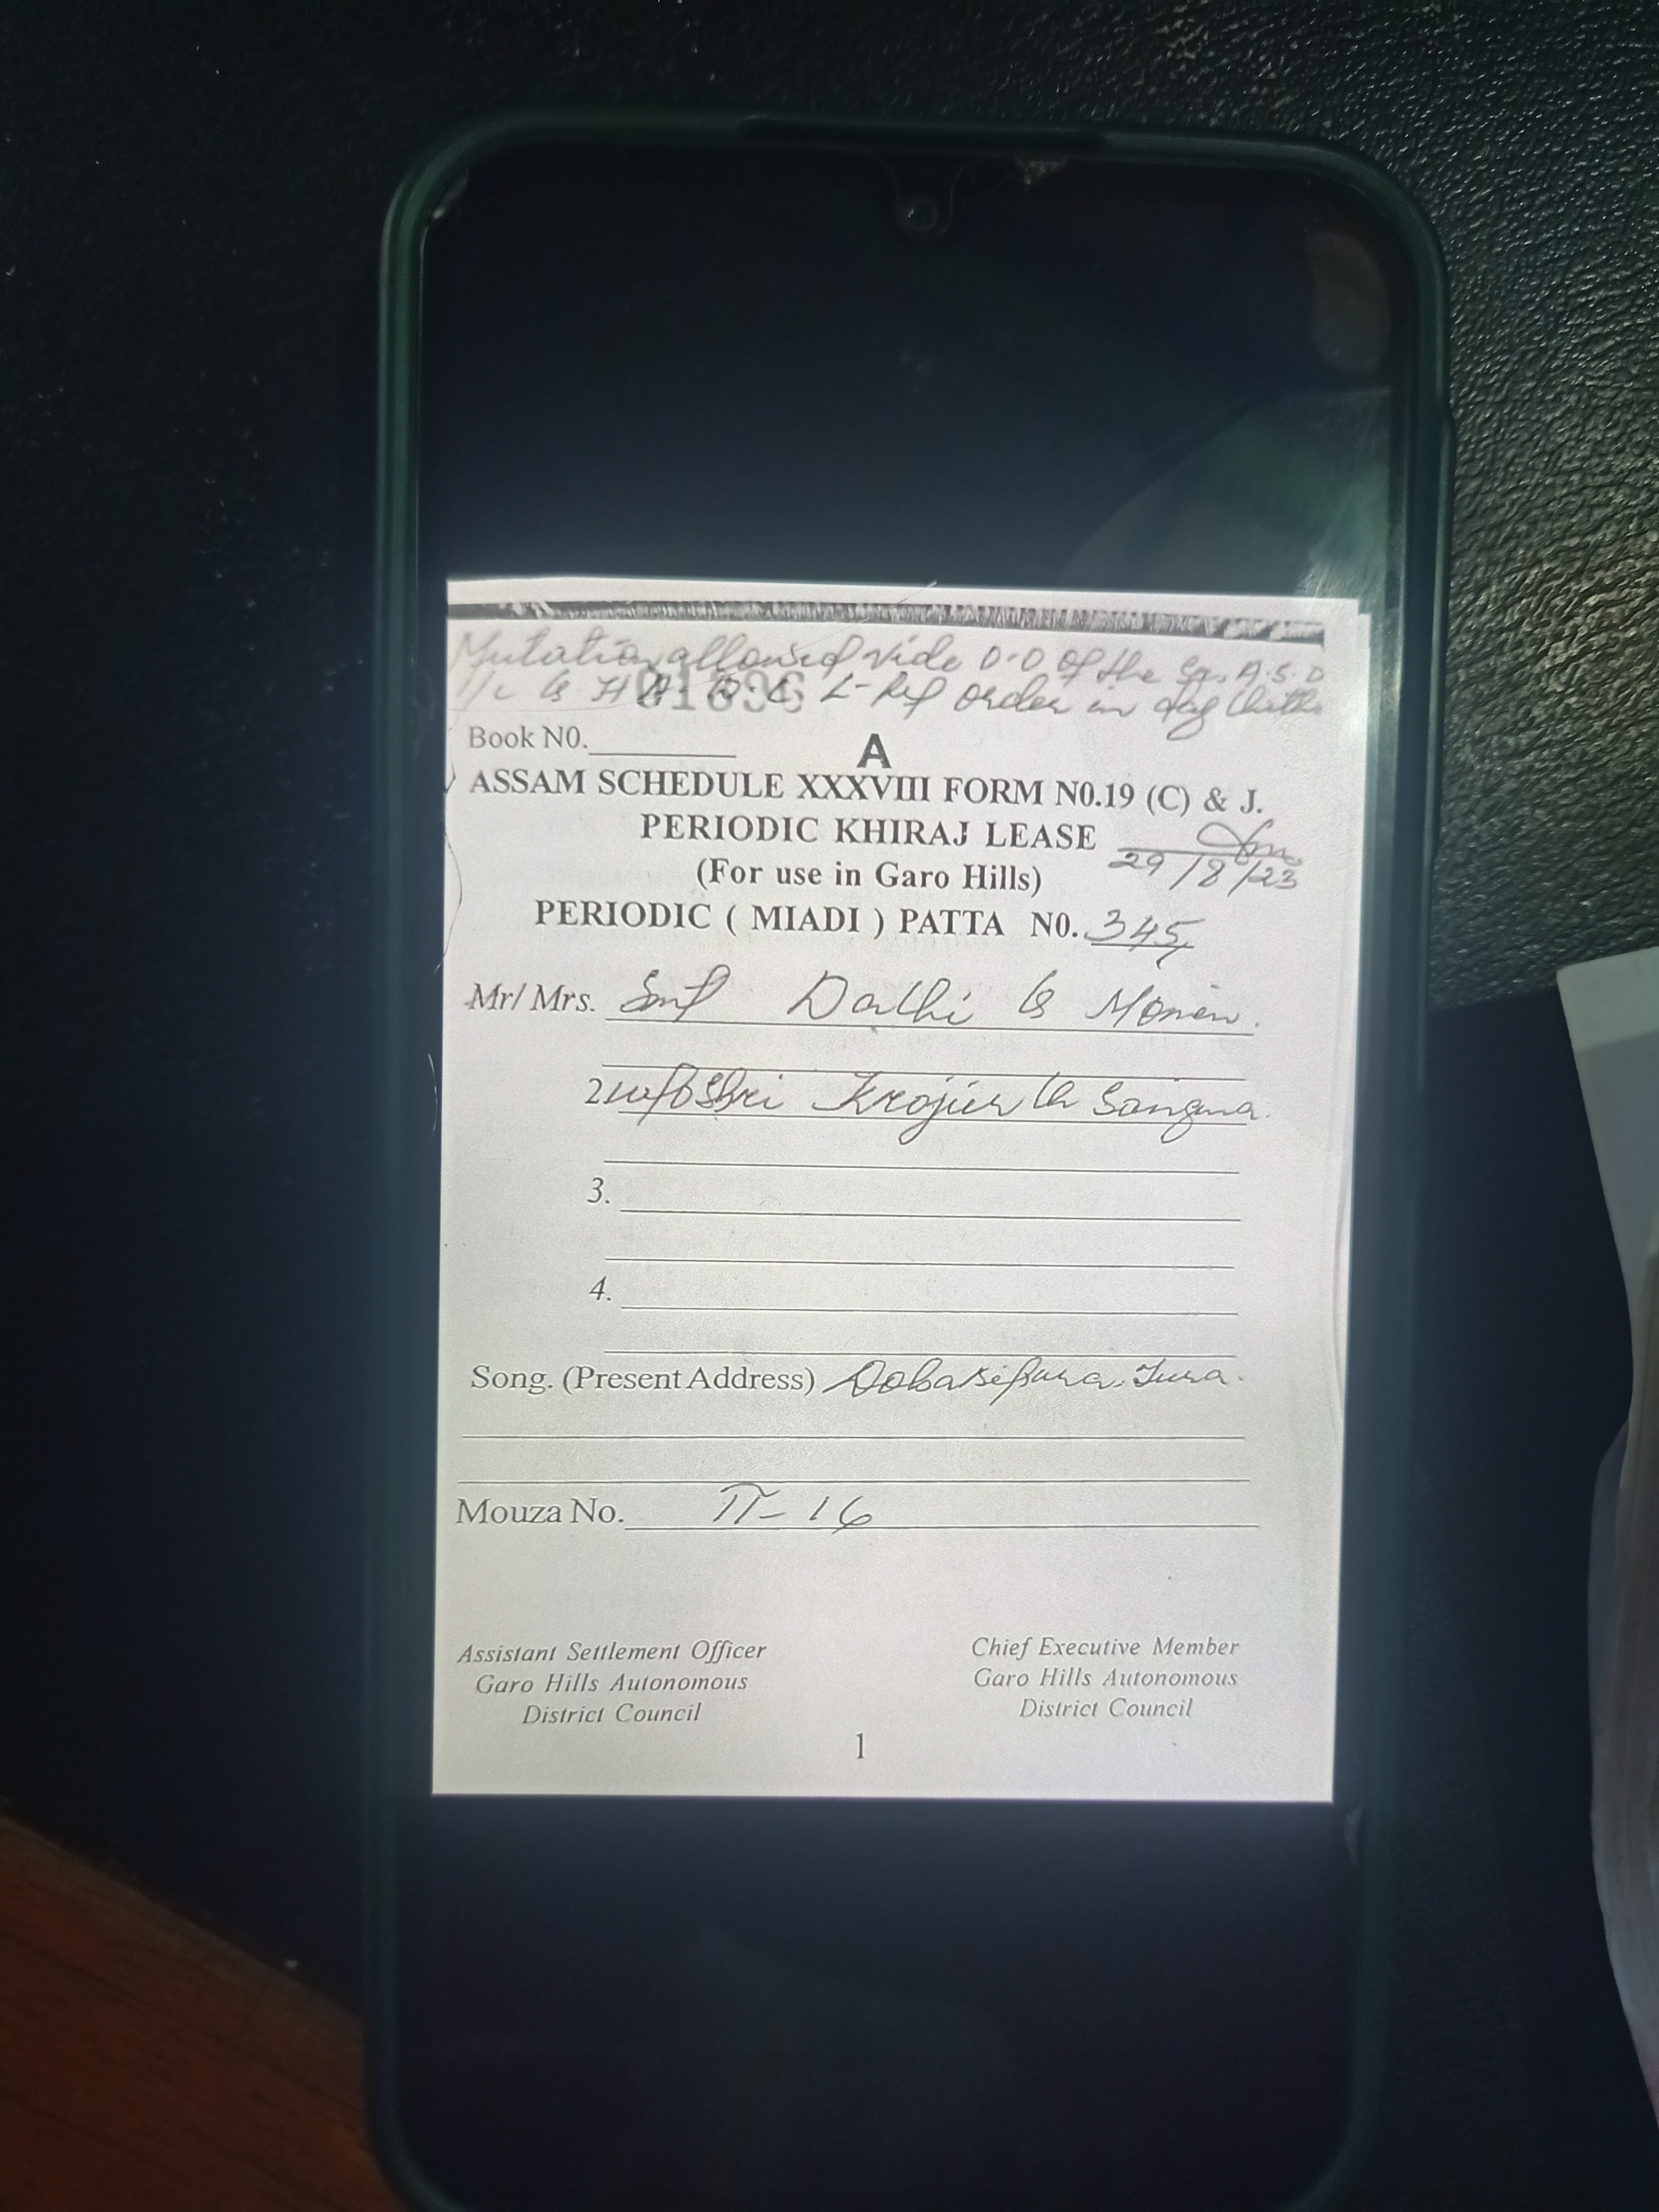 Mutation allowed vide O.O of the Sr. A.S.O
I/c G H A. D. C L-Ref order in dag Chitha
Book N0.
A
ASSAM SCHEDULE XXXVIII FORM N0.19 (C) & J.
PERIODIC KHIRAJ LEASE
29/8/23
(For use in Garo Hills)
PERIODIC ( MIADI ) PATTA N0. 345
Mr/ Mrs. Smt Dalhi G Momin.
2 w/o Shri Krojier Ch Sangma.
3.
4.
Song. (Present Address) Dobakipura, Tura.
Mouza No. II - 16
Assistant Settlement Officer
Garo Hills Autonomous
District Council
Chief Executive Member
Garo Hills Autonomous
District Council
1